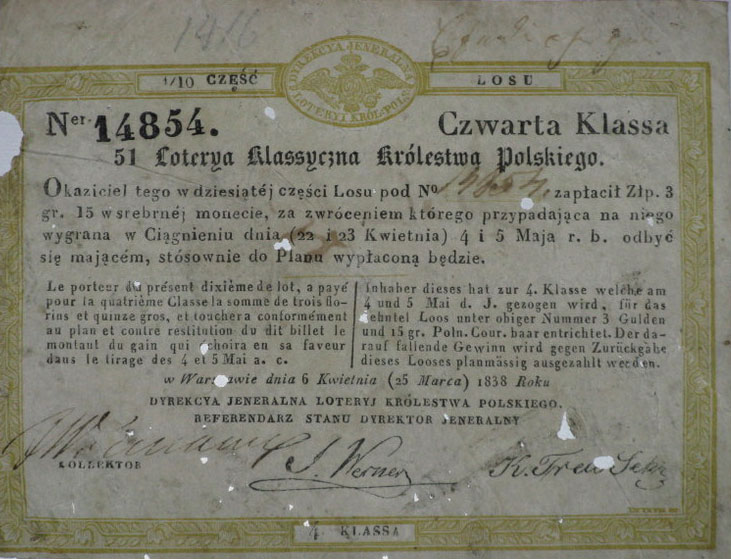 1/10 CZĘŚĆ
DYREKCYA JENERALNA
LOTERYJ KRÓL. POLS.
LOSU
Ner. 14854.
Czwarta Klassa
51 Loterya Klassyczna Królestwa Polskiego.
Okaziciel tego w dziesiątéj części Losu pod No. 14854. zapłacił Złp. 3
gr. 15 w srebrnéj monecie, za zwróceniem którego przypadająca na niego
wygrana w Ciągnieniu dnia (22 i 23 Kwietnia) 4 i 5 Maja r. b. odbyć
się mającém, stósownie do Planu wypłaconą będzie.
Le porteur du présent dixième de lot, a payé
pour la quatrième Classe la somme de trois flo-
rins et quinze gros, et touchera conformément
au plan et contre restitution du dit billet le
montant du gain qui échoira en sa faveur
dans le tirage des 4 et 5 Mai a. c.
Inhaber dieses hat zur 4. Klasse welche am
4 und 5 Mai d. J. gezogen wird, für das
Zehntel Loos unter obiger Nummer 3 Gulden
und 15 gr. Poln. Cour. baar entrichtet. Der da-
rauf fallende Gewinn wird gegen Zurückgabe
dieses Looses planmässig ausgezahlt werden.
w Warszawie dnia 6 Kwietnia (25 Marca) 1838 Roku
DYREKCYA JENERALNA LOTERYJ KRÓLESTWA POLSKIEGO.
REFERENDARZ STANU DYREKTOR JENERALNY
KOLLEKTOR
J. Werner
4. KLASSA